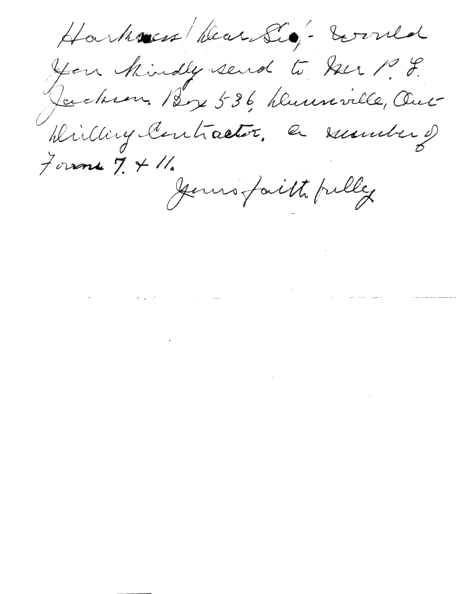 Harkness / Dear Sir;- Would
you kindly send to Mr P. L.
Jackson Box 536, Dunnville, Ont
Drilling Contractor, a number of
Forms 7. & 11.
Yours faithfully